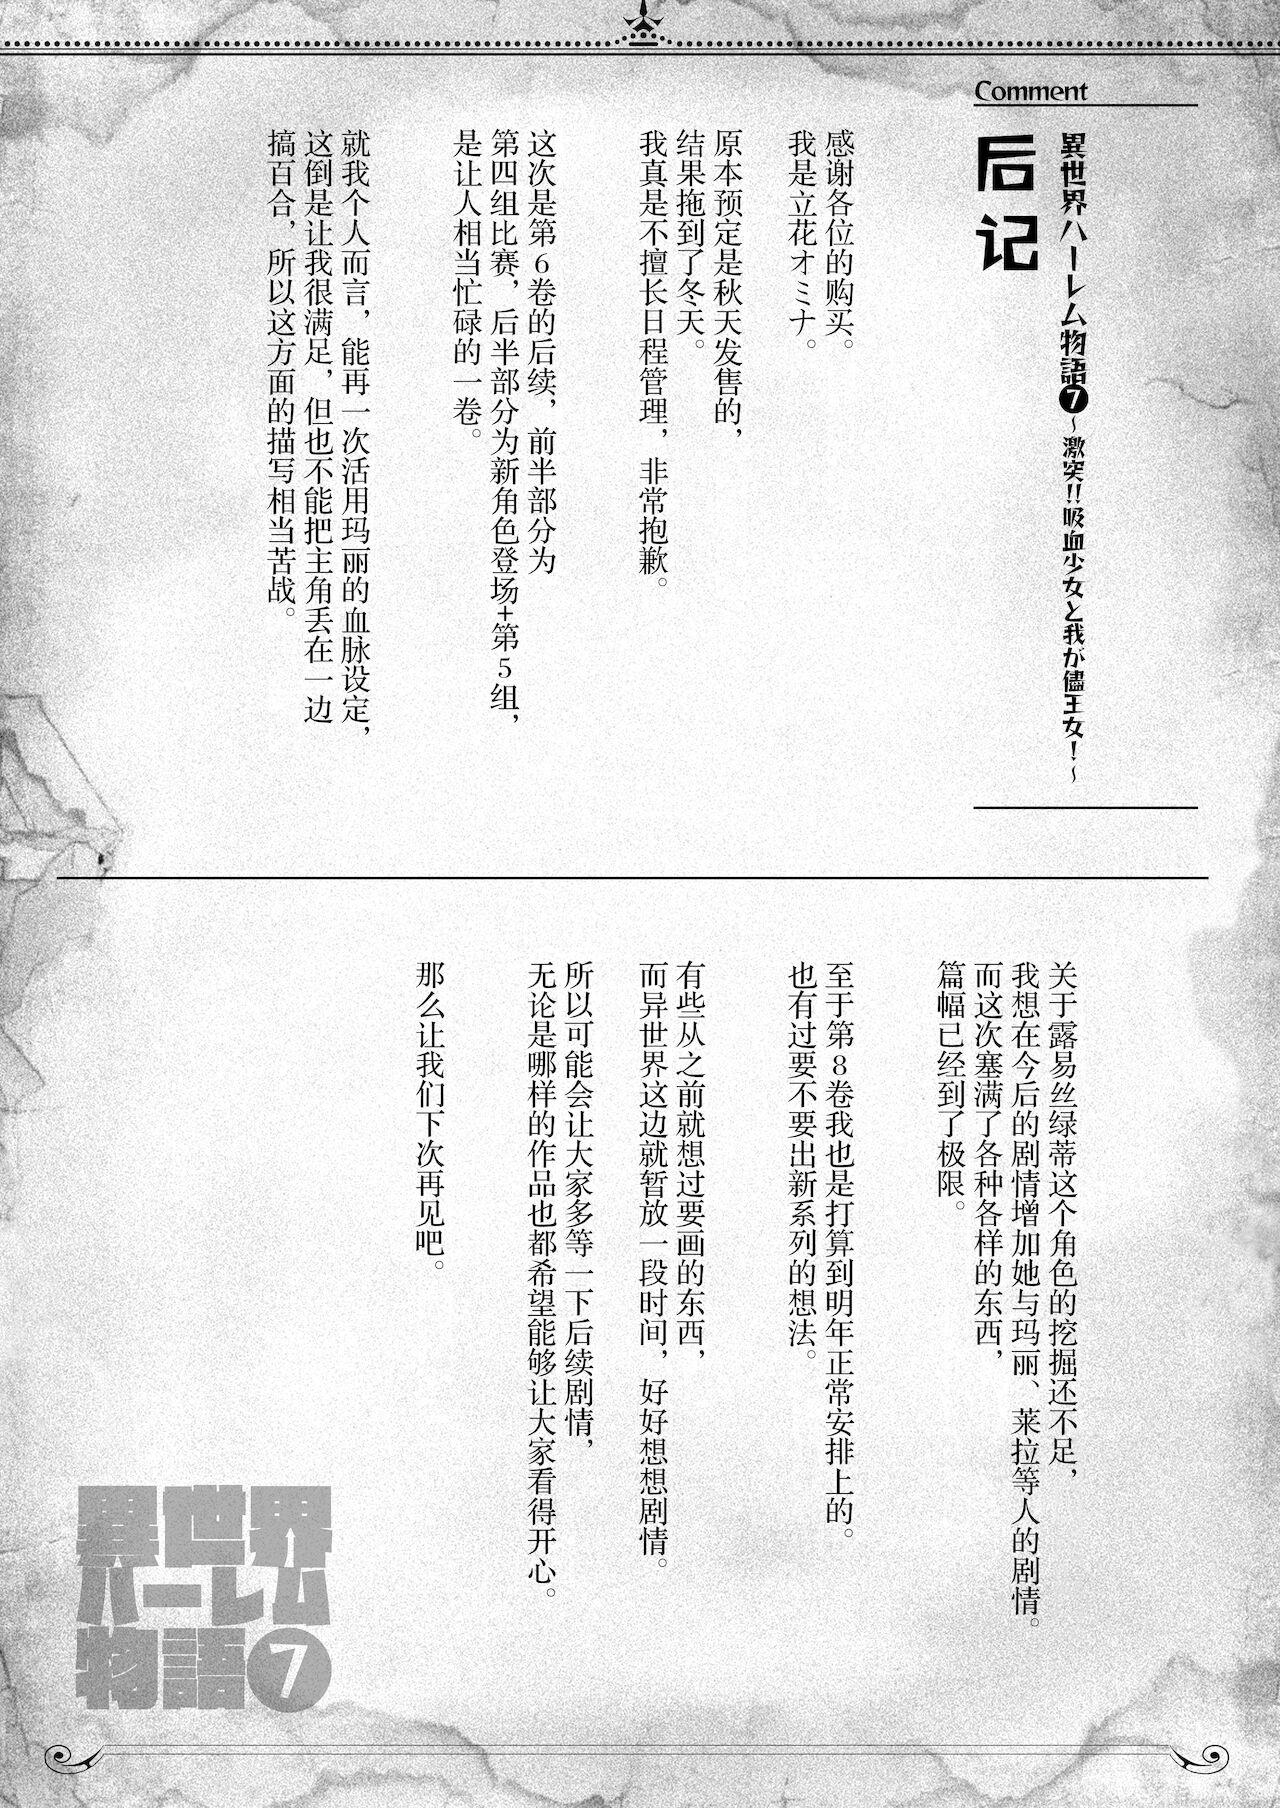 Comment
異世界ハーレム物語7～激突!!吸血少女と我が儘王女!～
后记
感谢各位的购买。
我是立花オミナ。
原本预定是秋天发售的，
结果拖到了冬天。
我真是不擅长日程管理，非常抱歉。
这次是第6卷的后续，前半部分为
第四组比赛，后半部分为新角色登场+第5组，
是让人相当忙碌的一卷。
就我个人而言，能再一次活用玛丽的血脉设定，
这倒是让我很满足，但也不能把主角丢在一边
搞百合，所以这方面的描写相当苦战。
关于露易丝绿蒂这个角色的挖掘还不足，
我想在今后的剧情增加她与玛丽、莱拉等人的剧情。
而这次塞满了各种各样的东西，
篇幅已经到了极限。
至于第8卷我也是打算到明年正常安排上的。
也有过要不要出新系列的想法。
有些从之前就想过要画的东西，
而异世界这边就暂放一段时间，好好想想剧情。
所以可能会让大家多等一下后续剧情，
无论是哪样的作品也都希望能够让大家看得开心。
那么让我们下次再见吧。
異世界
ハーレム
物語7